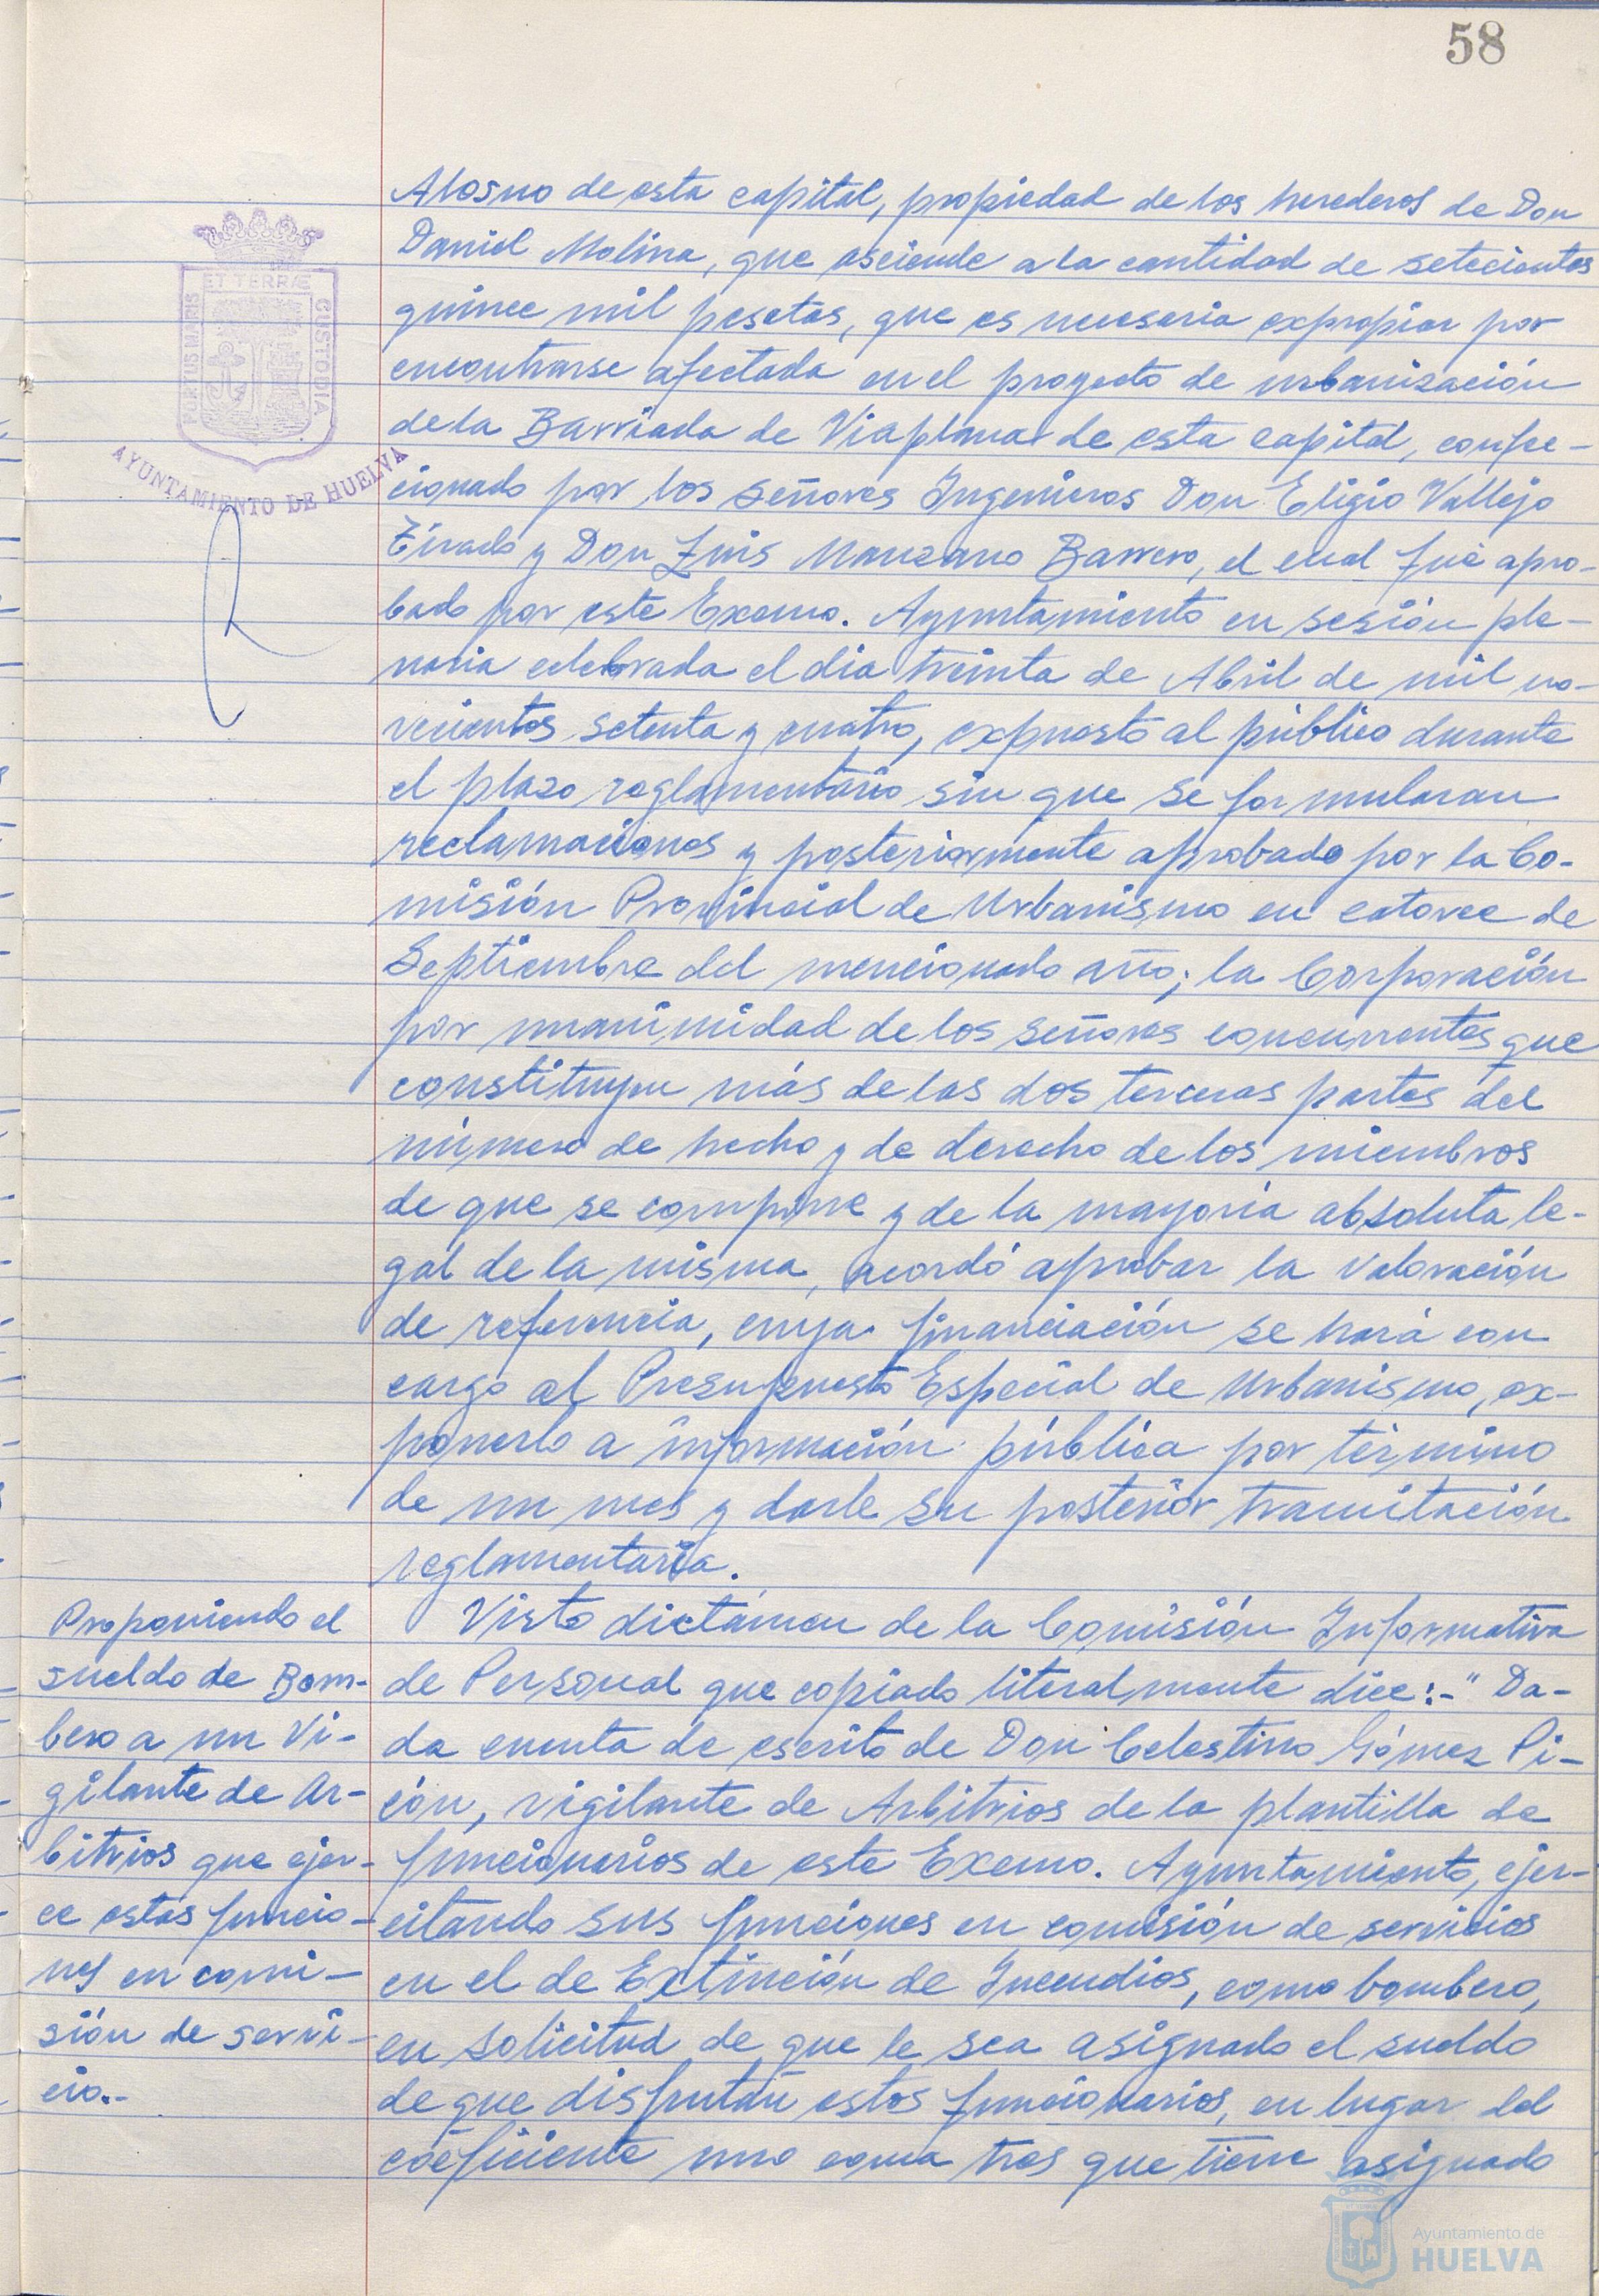 58
Alosno de esta capital, propiedad de los herederos de Don
Daniel Molina, que asciende a la cantidad de setecientas
quince mil pesetas, que es necesaria expropiar por
encontrarse afectada en el proyecto de urbanización
de la Barriada de Viaplana de esta capital, confec-
cionado por los señores Ingenieros Don Eligio Vallejo
Tirado y Don Luis Manzano Barrero, el cual fué apro-
bado por este Excmo. Ayuntamiento en sesión ple-
naria celebrada el dia treinta de Abril de mil no-
vecientos setenta y cuatro, expuesto al público durante
el plazo reglamentario sin que se formularan
reclamaciones y posteriormente aprobado por la Co-
misión Provincial de Urbanismo en catorce de
Septiembre del mencionado año; la Corporación
por unanimidad de los señores concurrentes que
constituyen más de las dos terceras partes del
número de hecho y de derecho de los miembros
de que se compone y de la mayoría absoluta le-
gal de la misma, acordó aprobar la valoración
de referencia, cuya financiación se hará con
cargo al Presupuesto Especial de Urbanismo, ex-
ponerlo a información pública por término
de un mes y darle su posterior tramitación
reglamentaria.
Proponiendo el
sueldo de Bom-
bero a un Vi-
gilante de Ar-
bitrios que ejer-
ce estas funcio-
nes en comi-
sión de servi-
cio.-
Visto dictámen de la Comisión Informativa
de Personal que copiado literalmente dice:-" Da-
da cuenta de escrito de Don Celestino Gómez Pi-
cón, vigilante de Arbitrios de la plantilla de
funcionarios de este Excmo. Ayuntamiento, ejer-
citando sus funciones en comisión de servicios
en el de Extinción de Incendios, como bombero,
en solicitud de que le sea asignado el sueldo
de que disfrutan estos funcionarios, en lugar del
coeficiente uno coma tres que tiene asignado
PORTUS MARIS
ET TERRÆ
CUSTODIA
AYUNTAMIENTO DE HUELVA
Ayuntamiento de
HUELVA